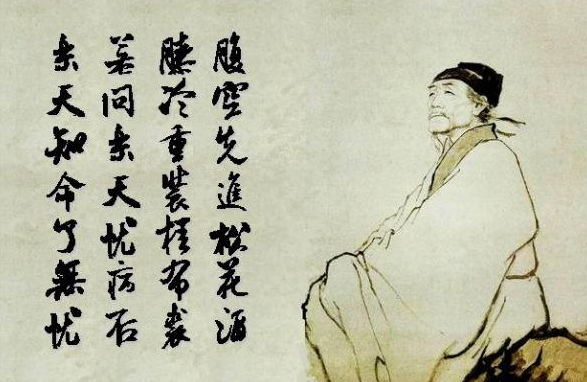 腹空先進松花酒
膝冷重裝桂布裘
若问乐天忧病否
乐天知命了無忧